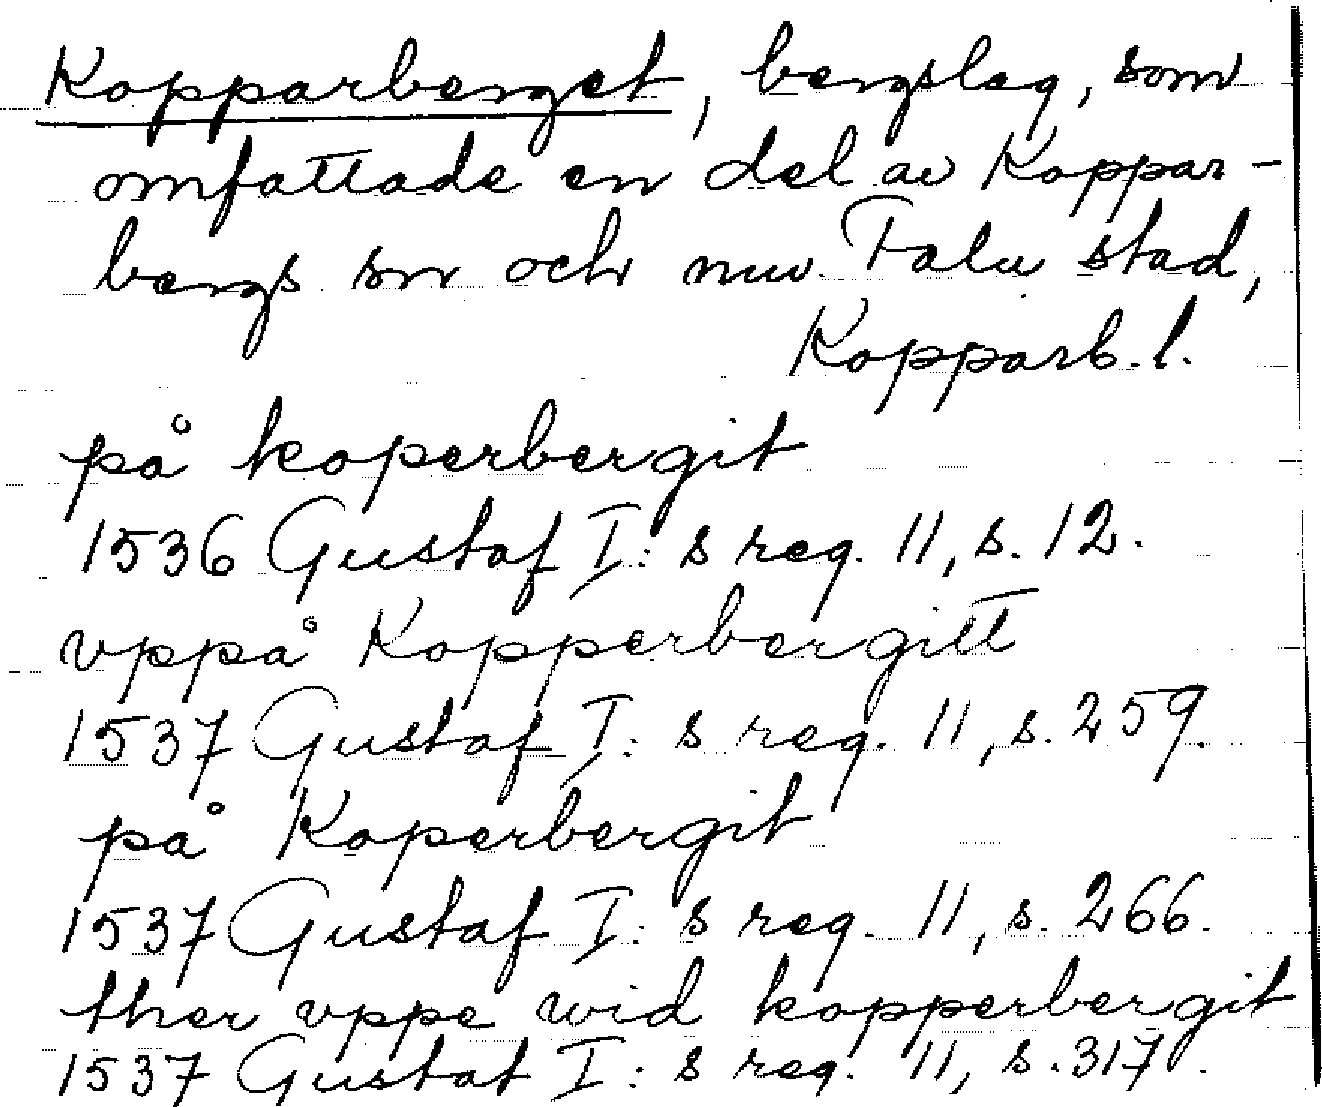 Kopparberget, bergslag, som
omfattade en del av Koppar-
bergs sn och nuv. Falu stad,
Kopparb. l.
på koperbergit
1536 Gustaf I: s reg. 11, s. 12.
vppå Kopperbergitt
1537 Gustaf I: s reg. 11, s. 259.
på Koperbergit
1537 Gustaf I: s reg. 11, s. 266.
ther vppe wid kopperbergit
1537 Gustaf I: s reg. 11, s. 317.